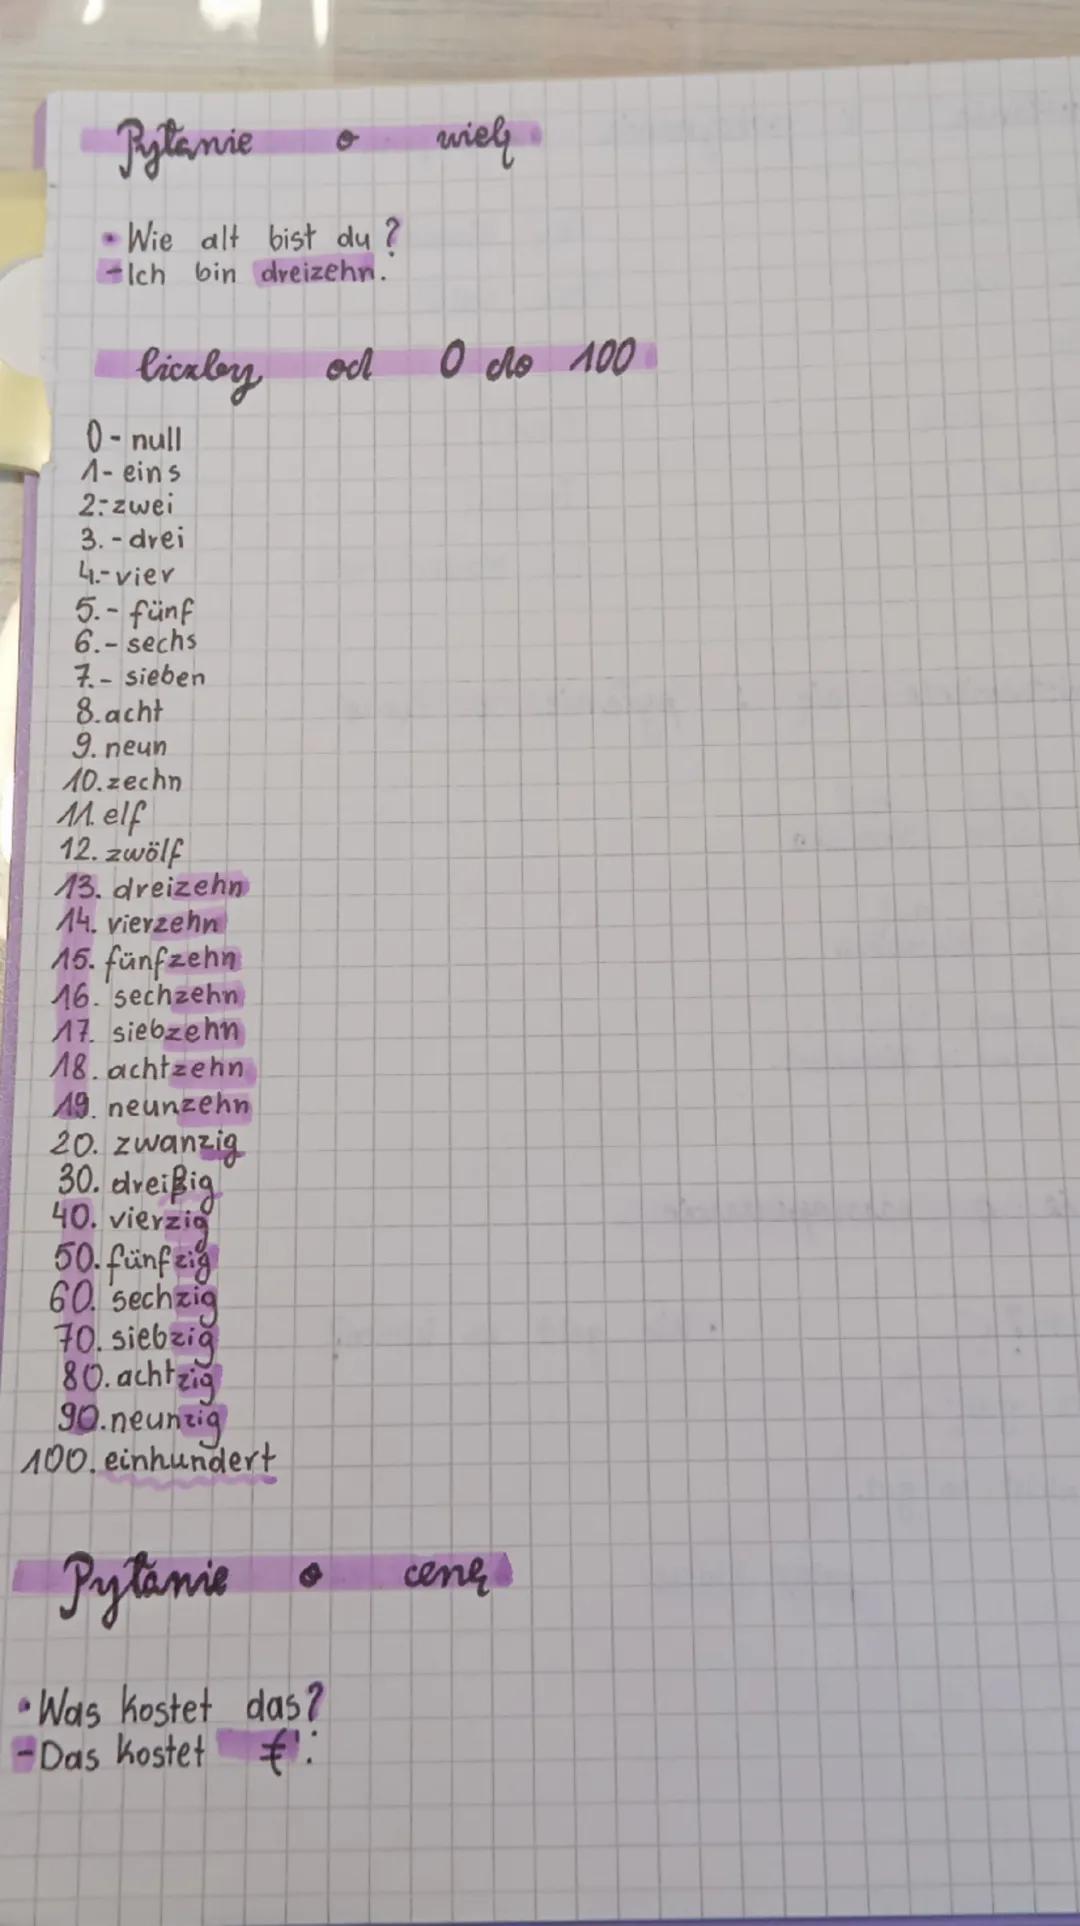 Pytanie o wiek
• Wie alt bist du?
- Ich bin dreizehn.
liczby od 0 do 100
0 - null
1 - eins
2.- zwei
3. - drei
4.- vier
5. - fünf
6. - sechs
7. - sieben
8. acht
9. neun
10. zechn
11. elf
12. zwölf
13. dreizehn
14. vierzehn
15. fünfzehn
16. sechzehn
17. siebzehn
18. achtzehn
19. neunzehn
20. zwanzig
30. dreißig
40. vierzig
50. fünfzig
60. sechzig
70. siebzig
80. achtzig
90. neunzig
100. einhundert
Pytanie o cenę
• Was kostet das?
- Das kostet €